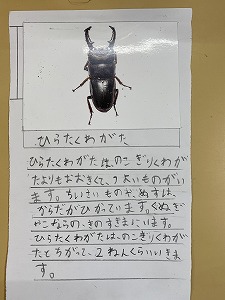 ひらたくわがた
ひらたくわがたは、のこぎりくわが
たよりもおおきくて、つよいものがい
ます。ちいさいものや、めすは、
からだがひかっています。くぬぎ
やこならの、きのすきまにいます。
ひらたくわがたは、のこぎりくわが
たとちがって、2ねんくらいいきま
す。